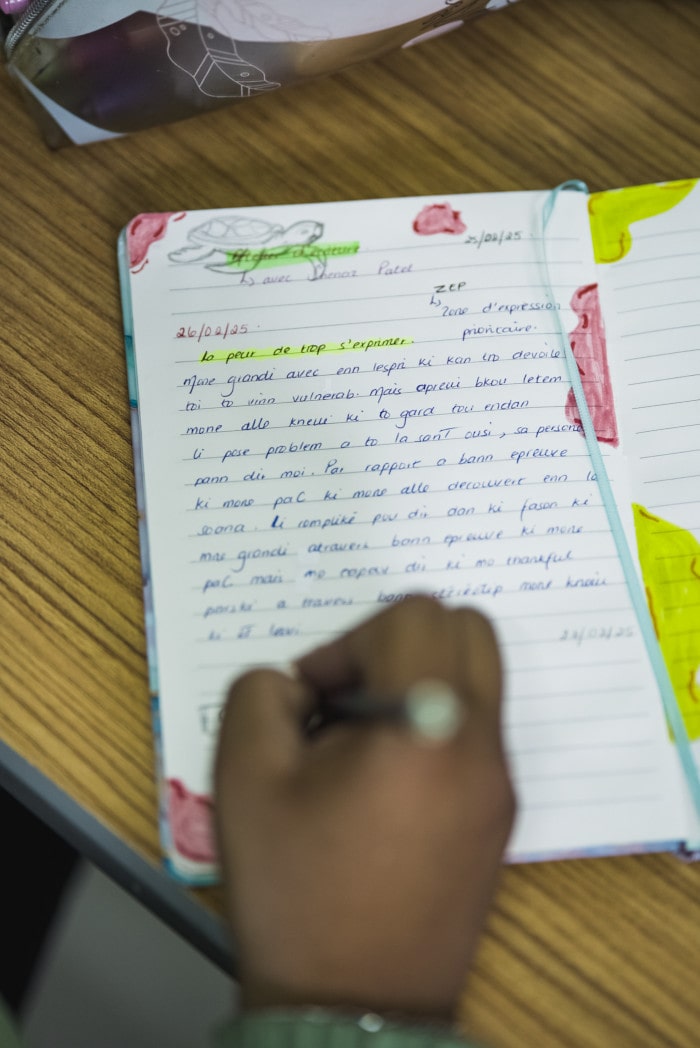 25/02/25.
↳ avec Shenaz Patel
ZEP
↳ Zone d'expression
prioritaire.
26/02/25.
la peur de trop s'exprimer.
Mone grandi avec enn lespri ki kan tro devoile
toi to vinn vulnerab. Mais apreui bkou letem
mone alle kneui ki to gard tou endan
li pose problem a to la sanT ousi, sa person
pann dir moi. Par rapport a bann epreuve
ki mone paC ki mone alle decouvert enn la
soana. li complike pou dir dan ki fason ki
mne grandi atravers bann epreuve ki mone
paC mais mo capav dir ki mo thankful
parski a travers bann mone kneui
ki eT lavi.
27/02/25